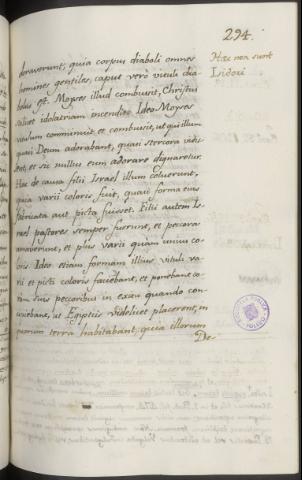 294.
Hæc non sunt
Isidori
doraverunt, quia corpus diaboli omnes
homines gentiles, caput verò vituli dia-
bolus est. Moyses illud combusit, Christus
salvet idolatriam incendit. Ideo Moyses
vitulum comminuit et combusit, ut qui illum
quasi Deum adorabant, quasi stercora vide-
rent, et sic nullus eum adorare dignaretur.
Hac de causa filii Israel illum coluerunt,
quia varii coloris fuit, quasi forma eius
fabricata aut picta fuisset. Filii autem Is-
rael pastores semper fuerunt, et pecora
amaverunt, et plus varii quam unius co-
loris. Ideo etiam formam illius vituli va-
rii et picti coloris faciebant, et ponebant
suis pecoribus in esca quando con-
ut Egiptiis videlicet placerent, in
quorum terra habitabant, quia illorum
De-